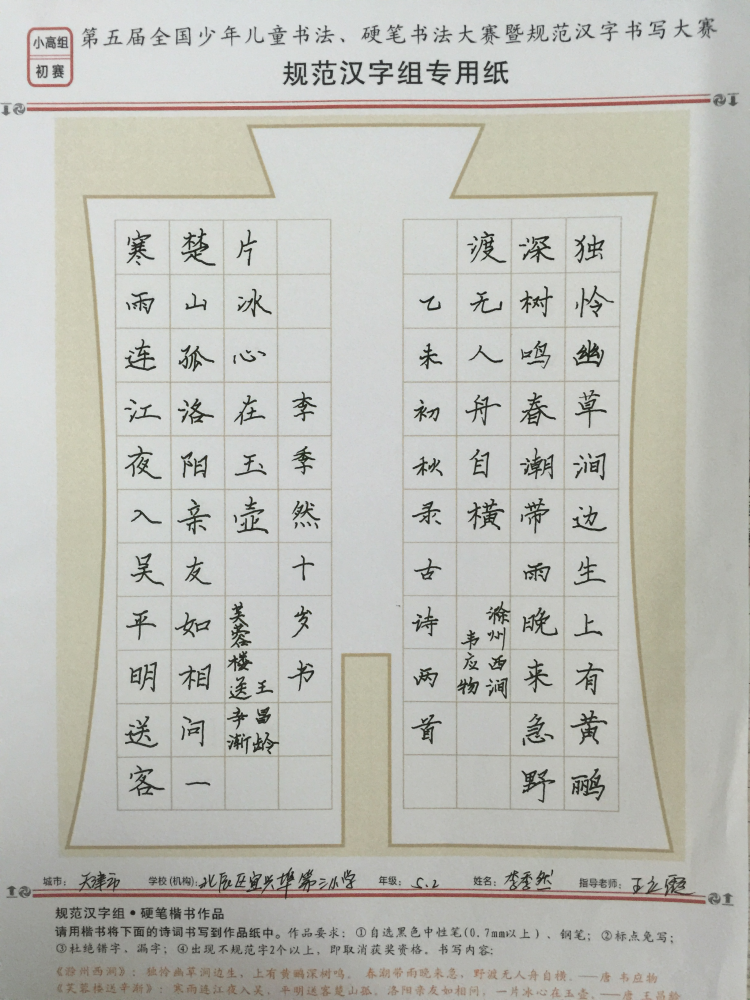 小高组
初赛
第五届全国少年儿童书法、硬笔书法大赛暨规范汉字书写大赛
规范汉字组专用纸
独怜幽草涧边生上有黄鹂
深树鸣春潮带雨晚来急野
渡无人舟自横
滁州西涧
韦应物
乙未初秋录古诗两首
寒雨连江夜入吴平明送客
楚山孤洛阳亲友如相问一
片冰心在玉壶
芙蓉楼送辛渐
王昌龄
李季然十岁书
城市：天津市 学校(机构)：北辰区宜兴埠第三小学 年级：5.2 姓名：李季然 指导老师：
规范汉字组·硬笔楷书作品
请用楷书将下面的诗词书写到作品纸中。作品要求：①自选黑色中性笔(0.7mm以上)、钢笔；②标点免写；
③杜绝错字、漏字；④出现不规范字2个以上，即取消获奖资格。书写内容：
《滁州西涧》：独怜幽草涧边生，上有黄鹂深树鸣。春潮带雨晚来急，野渡无人舟自横。——唐 韦应物
《芙蓉楼送辛渐》：寒雨连江夜入吴，平明送客楚山孤。洛阳亲友如相问，一片冰心在玉壶。——唐 王昌龄